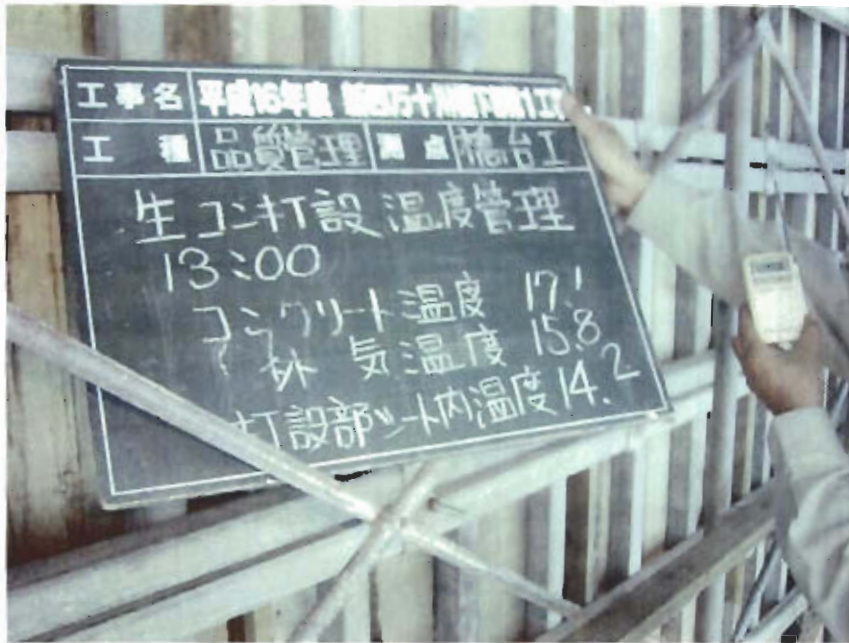 工事名 平成16年度 新四万十川橋下部第1工事
工種 品質管理 測点 橋台工
生コン打設温度管理
13:00
コンクリート温度 17.1
外気温度 15.8
打設部シート内温度 14.2